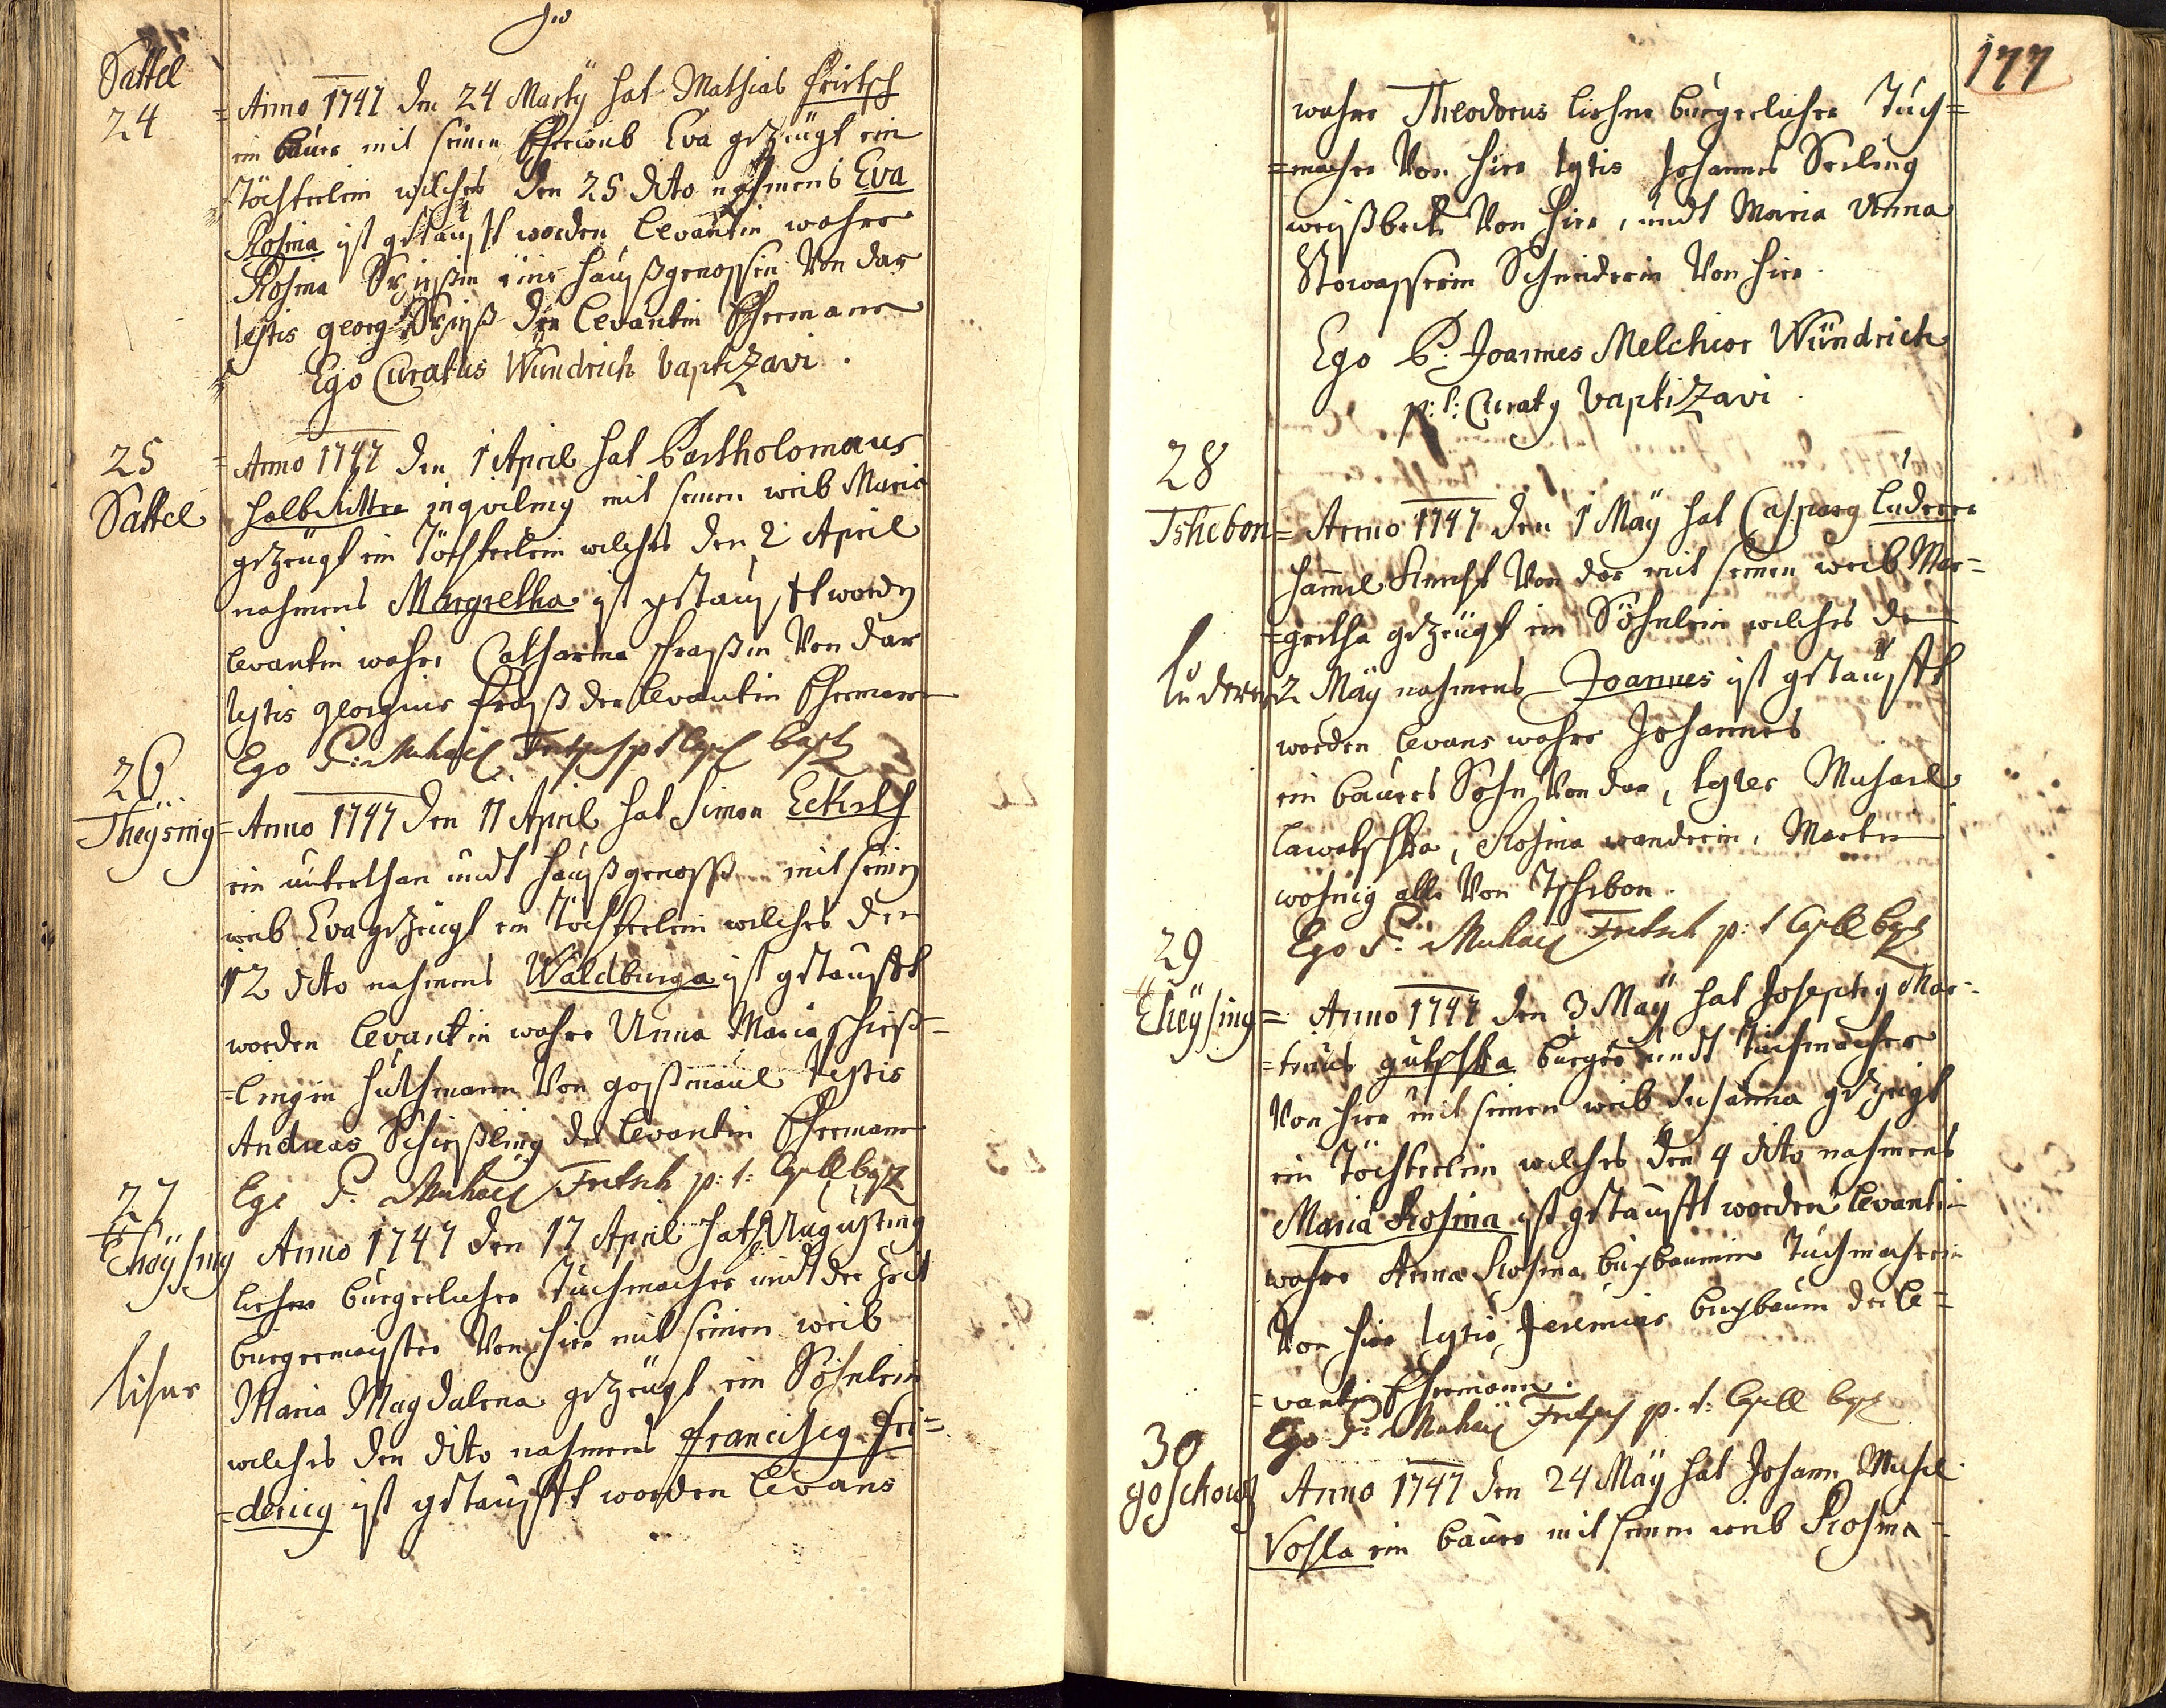 Sattel
24
= Anno 1747 den 24 Marty hat Mathias Fritsch
ein Bauer mit seinen Eheweib Eva gezeügt ein
Töchterlein welches den 25 dito nahmens Eva
Rosina ist getaufft worden Levantin wahre
Rosina eine haußgenossin Von dar
testis georg der Levantin Ehemann
Ego Curatus Wündrich baptizavi.
25
Sattel
= Anno 1747 den 1 April hat Bartholomaus
halbritter inqvilinq mit seinen weib Maria
gezeügt ein Töchterlein welches den 2 April
nahmens Margretha ist getaufft wordn
Levantin wahre Catharina Von dar
testis georgius der Levantin Ehemann
Ego P: Michäel Fritsch p t Capl bapt
26
Theysing
= Anno 1747 den 11 April hat Simon
ein unterthan undt haußgenoss mit seinen
weib Eva gezeügt ein Töchterlein welches den
12 dito nahmens Waldburga ist getaufft
worden Levantin wahre Anna Maria Schieß-
=lingin Von testis
Andreas Schießling der Levantin Ehemann
Ego P. Michäel Fritsch p: t: Capll bapt
27
Theÿsing
Anno 1747 den 17 April hat Augustinq
Liehne bürgerlicher Tuchmacher undt der Zeit
bürgermeister Von hier mit seinen weib
Liehne
Maria Magdalena gezeügt ein Söhnlein
welches den dito nahmens Franciscq Fri=
=dericq ist getaufft worden Levans
177
wahre Theodorus Liehne bürgerlicher Tuch=
=macher Von hier testis Johannes Seiling
weißbeck Von hier, undt Maria Anna
Stowasserin Schneiderin Von hier.
Ego P. Joannes Melchior Wündrich
p: t: Curatq baptizavi.
28
Tshebon
= Anno 1747 den 1 Maÿ hat Casparq Luderer
Von dar mit seinen weib Mar=
=gretha gezeügt ein Söhnlein welches den
Luderer
2 Maÿ nahmens Joannes ist getaufft
worden Levans wahre Johannes
ein bauers Sohn Von dar, testes Michael
Lawatschka, Rosina wanderin, Martin
alle Von Tschebon.
Ego P. Michäel Fritsch p: t Capll bapt
29
Theÿsing
= Anno 1747 den 3 Maÿ hat Josephq Mar=
=tinus gutschka bürger undt Tuchmacher
Von hier mit seinen weib Susanna gezeigt
ein Töchterlein welches den 4 dito nahmens
Maria Rosina ist getaufft worden Levantin
wahre Anna Rosina buxbaumin Tuchmacherin
Von hier testis Jeremias buxbaum der Le=
=vantin Ehemann.
Ego P. Michäel Fritsch p. t: Capll bapt
30
goschowitz
Anno 1747 den 24 Maÿ hat Johann Michl
Vosla ein bauer mit seinen weib Rosina